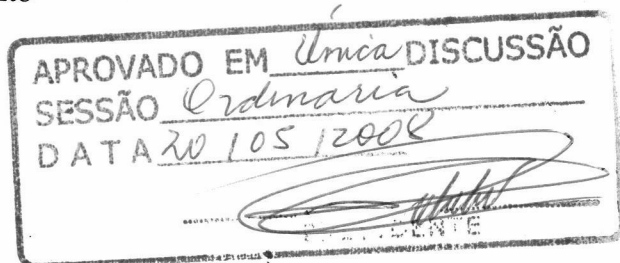 APROVADO EM Única DISCUSSÃO
SESSÃO Ordinaria
DATA 20 / 05 / 2008